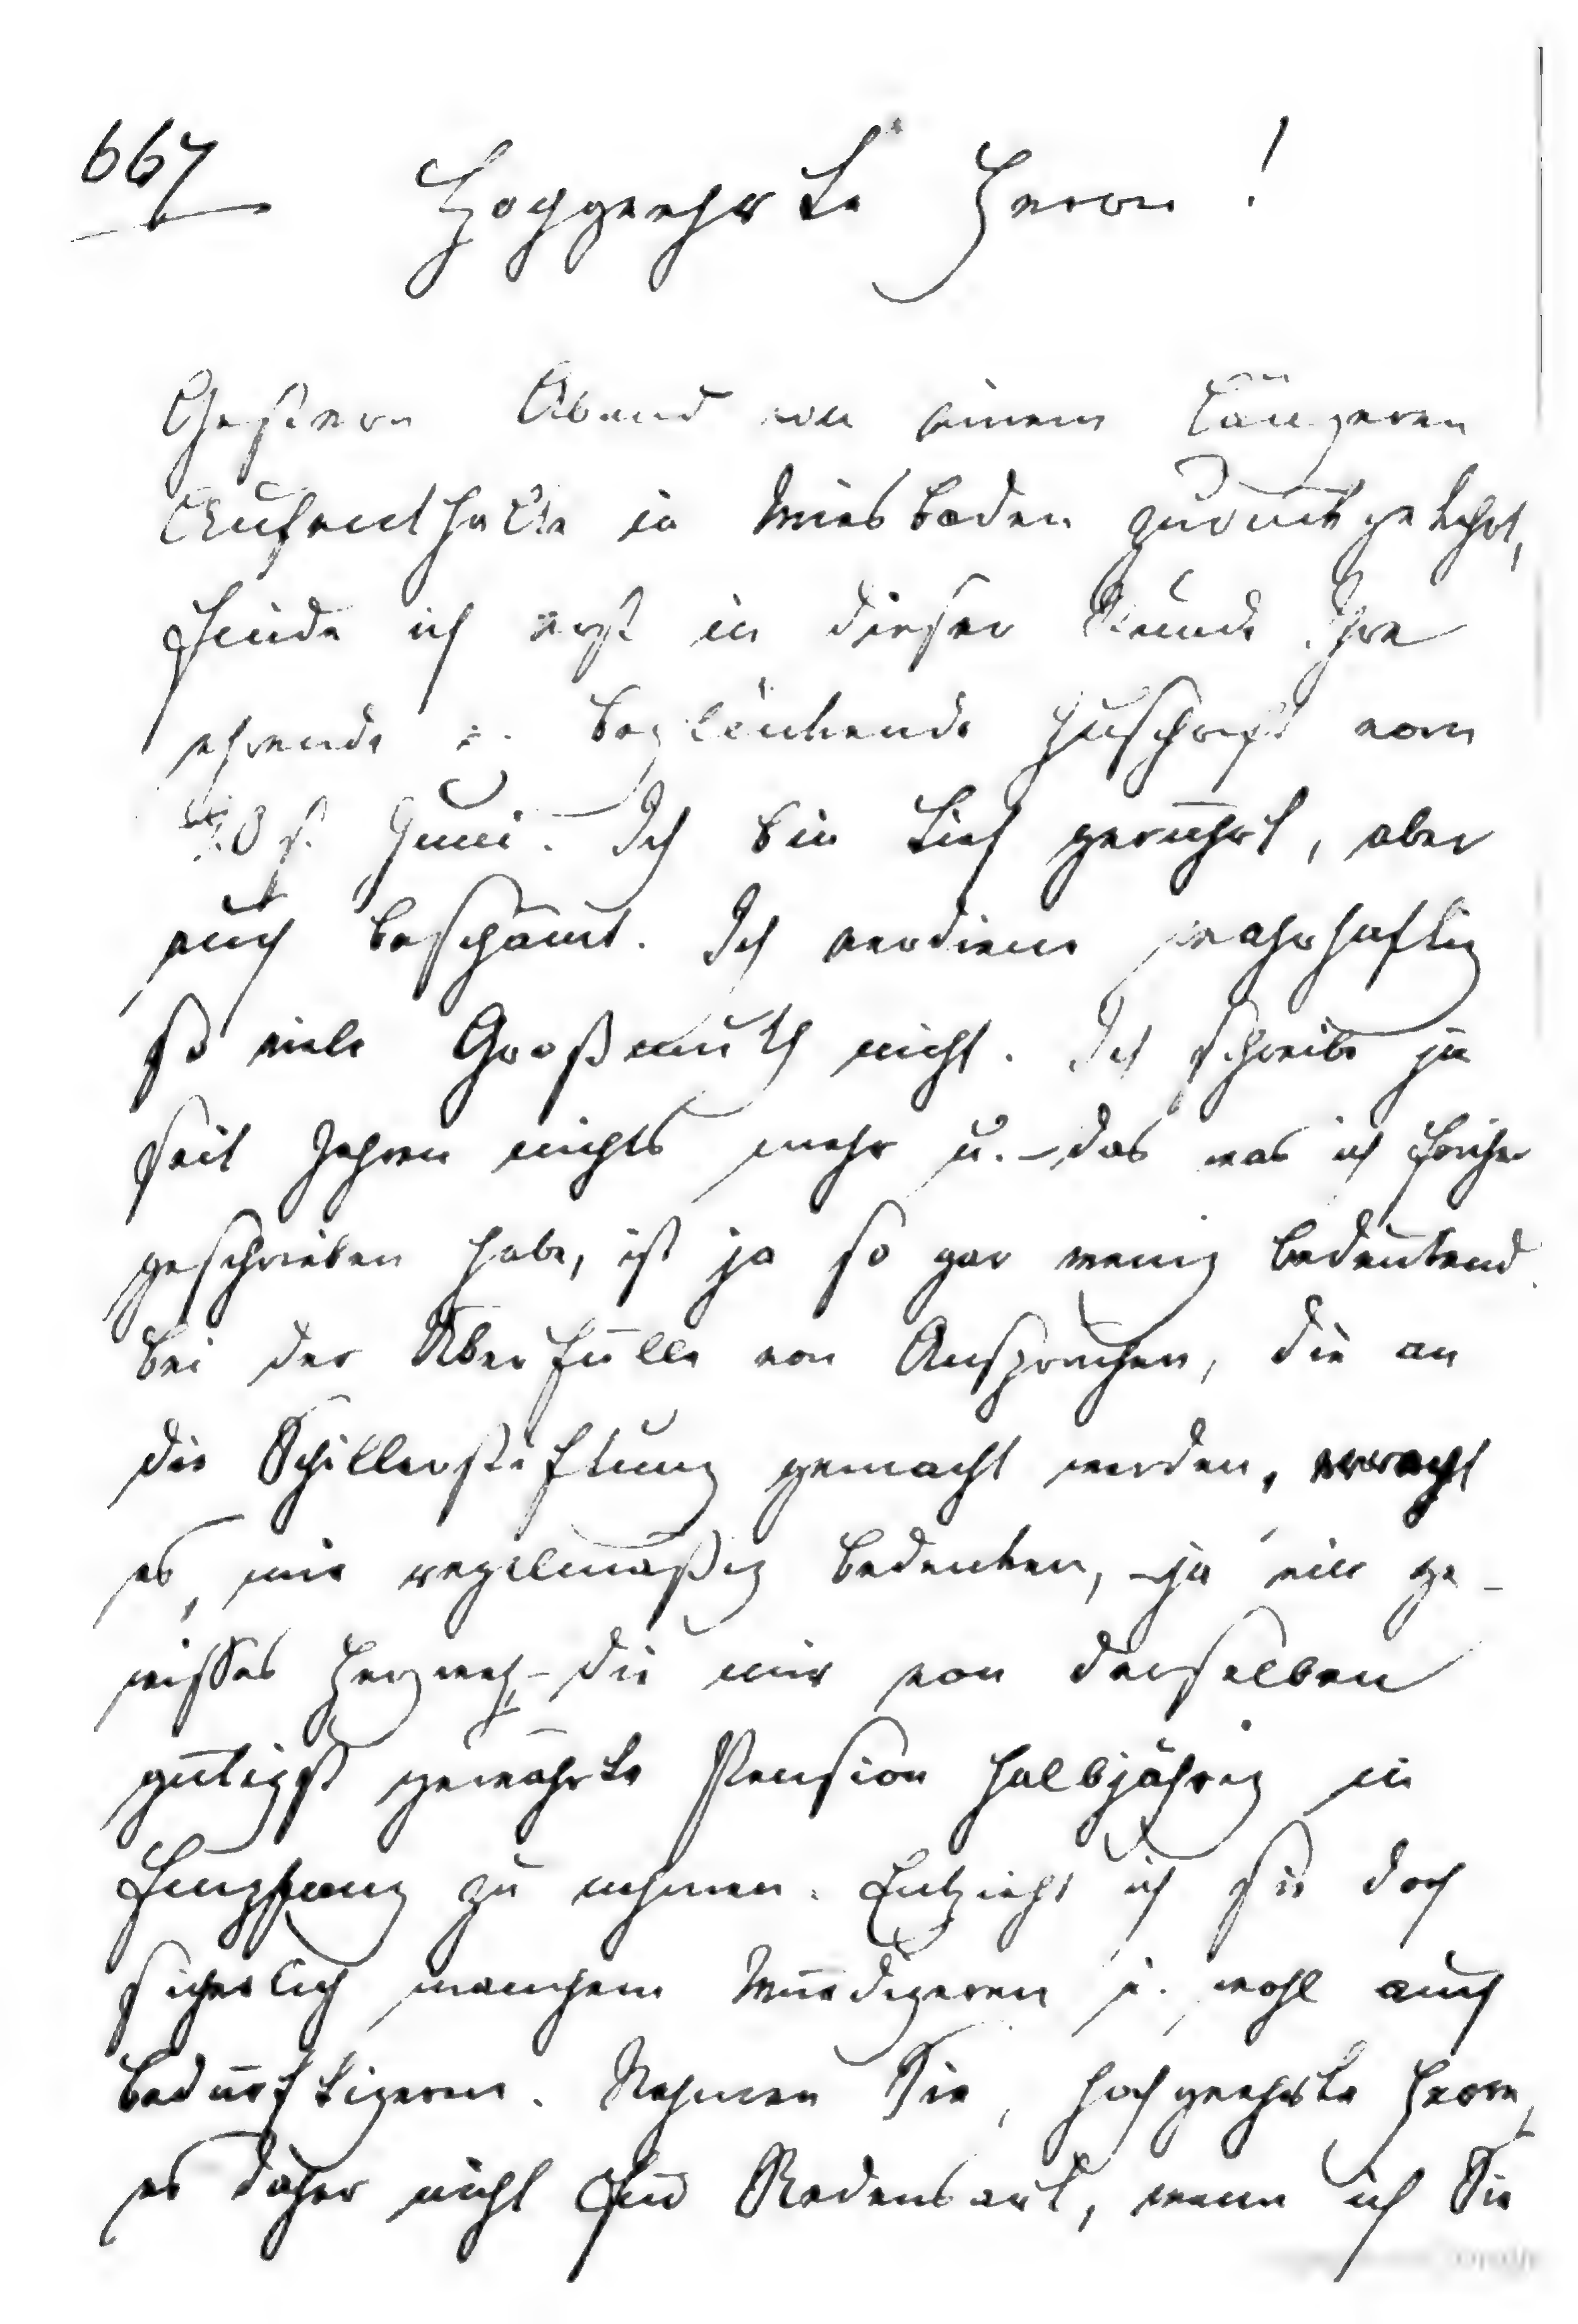 667
Hochgeehrte Herrn!
Gestern Abend von einem längeren
Aufenthalte in Wiesbaden zurückgekehrt,
finde ich erst in dieser Stunde Ihre
ehrende u. beglückende Zuschrift vom
Juni. Ich bin tief gerührt, aber
auch beschämt. Ich verdiene wahrhaftig
so viele Großmuth nicht. Ich schreibe ja
seit Jahren nichts mehr u. – das was ich früher
geschrieben habe, ist ja so gar wenig bedeutend.
Bei der Überfülle von Ansprüchen, die an
die Schillerstiftung gemacht werden, erregt
es mir regelmäßig Bedenken, – ja ein ge-
wisses Herzweh – die mir von derselben
gütigst gewährte Pension halbjährig in
Empfang zu nehmen. Entziehe ich sie doch
sicherlich manchem Würdigeren u. wohl auch
Bedürftigeren. Nehmen Sie, hochgeehrte Herrn,
es daher nicht für Redensart, wenn ich Sie